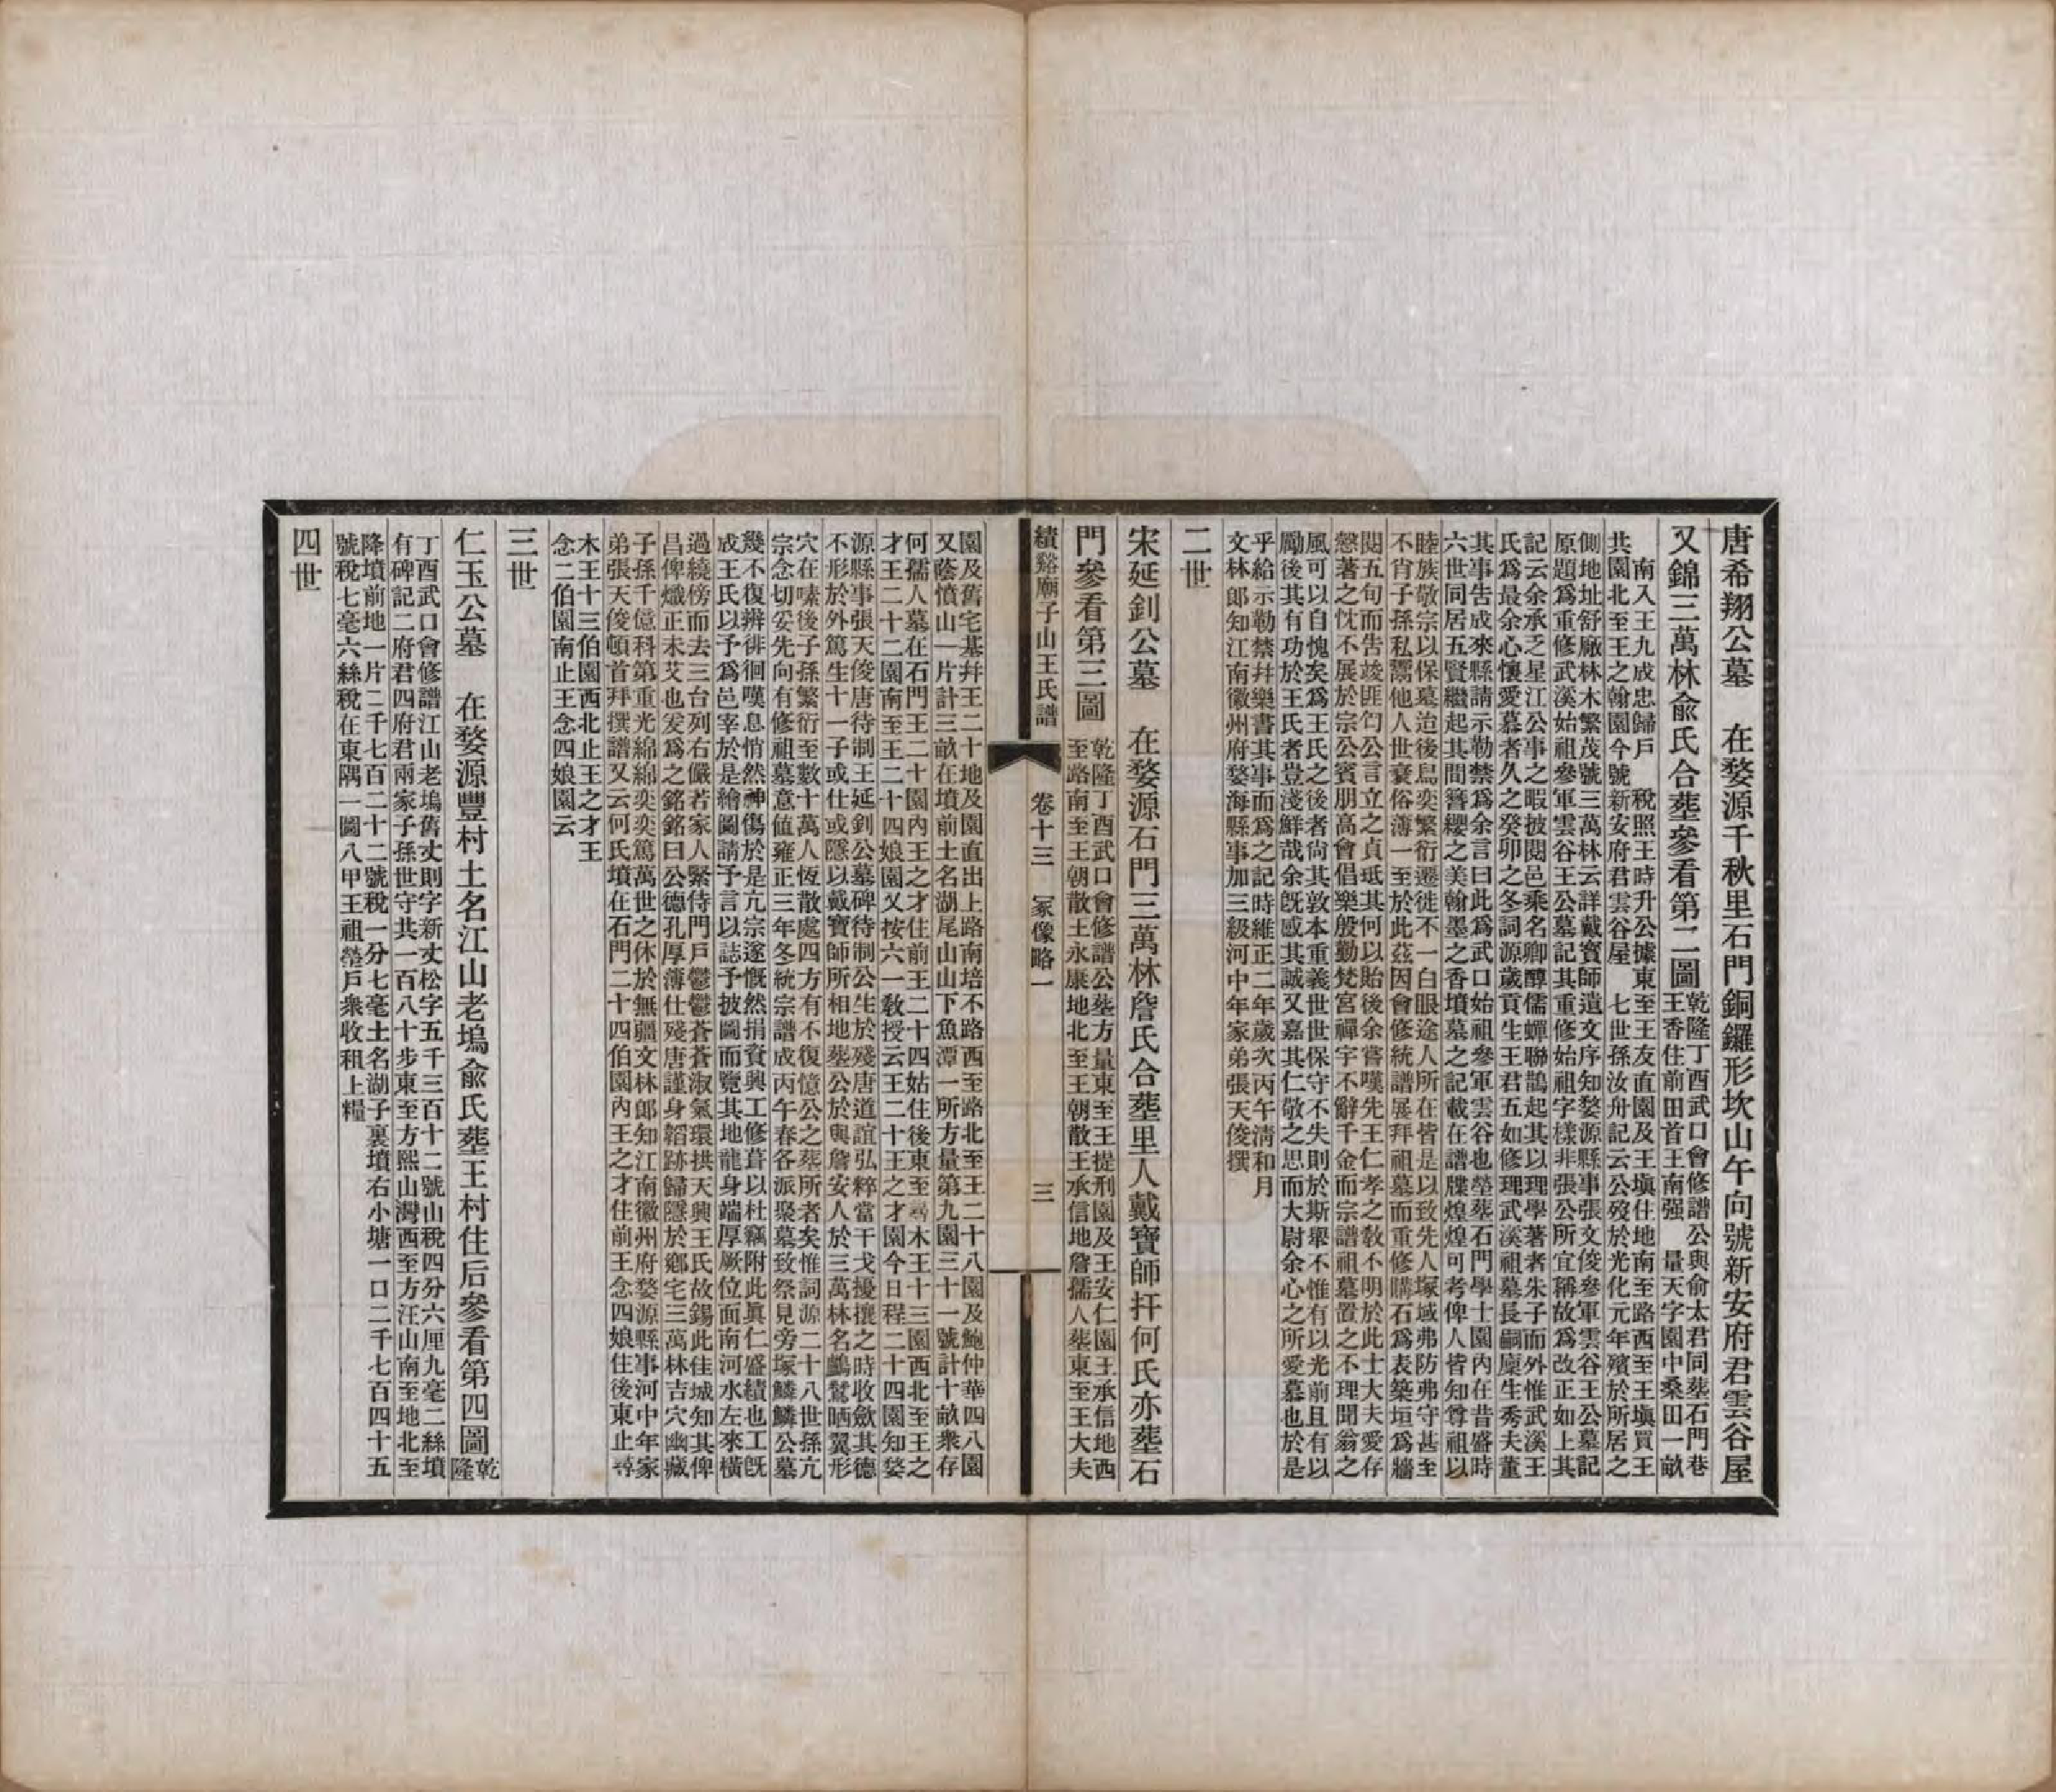 唐希翔公墓　在婺源千秋里石門銅鑼形坎山午向號新安府君雲谷屋
又錦三萬林俞氏合塟參看第二圖
乾隆丁酉武口會修譜公與俞太君同塟石門巷
王香住前田首王南强　量天字園中桑田一畝
南入王九成忠歸戶　稅照王時升公據東至王友直園及王塡住地南至路西至王塡買王
共園北至王之翰園今號新安府君雲谷屋　七世孫汝舟記云公歿於光化元年殯於所居之
側地址舒廠林木繁茂號三萬林云詳戴寶師遺文序知婺源縣事張文俊參軍雲谷王公墓記
原題爲重修武溪始祖參軍雲谷王公墓記其重修始祖字樣非張公所宜稱故爲改正如上其
記云余承乏星江公事之暇披閱邑乘名卿醇儒蟬聯鵲起其以理學著者朱子而外惟武溪王
氏爲最余心懷愛慕者久之癸卯之冬詞源歲貢生王君五如修理武溪祖墓長嗣廩生秀夫董
其事告成來縣請示勒禁爲余言曰此爲武口始祖參軍雲谷也塋塟石門學士園內在昔盛時
六世同居五賢繼起其間簪纓之美翰墨之香墳墓之記載在譜牒煌煌可考俾人皆知尊祖以
睦族敬宗以保墓迨後鳥奕繁衍遷徙不一白眼途人所在皆是以致先人塚域弗防弗守甚至
不肯子孫私鬻他人世衰俗薄一至於此茲因會修統譜展拜祖墓而重修購石爲表築垣爲牆
閱五旬而告竣匪匄公言立之貞珉其何以貽後余嘗嘆先王仁孝之敎不明於此士大夫愛存
慇著之忱不展於宗公賓朋高會倡樂殷勤梵宮禪宇不辭千金而宗譜祖墓置之不理聞翁之
風可以自愧矣爲王氏之後者尙其敦本重義世世保守不失則於斯舉不惟有以光前且有以
勵後其有功於王氏者豈淺鮮哉余旣感其誠又嘉其仁敬之思而大尉余心之所愛慕也於是
乎給示勒禁幷樂書其事而爲之記時維正二年歲次丙午淸和月
文林郞知江南徽州府婺海縣事加三級河中年家弟張天俊撰
二世
宋延釗公墓　在婺源石門三萬林詹氏合塟里人戴寶師扞何氏亦塟石
門參看第三圖
乾隆丁酉武口會修譜公塟方量東至王提刑園及王安仁園王承信地西
至路南至王朝散王永康地北至王朝散王承信地詹孺人塟東至王大夫
績谿廟子山王氏譜　卷十三　冢像略一　三
園及舊宅基幷王二十地及園直出上路南培不路西至路北至王二十八園及鮑仲華四八園
又蔭憤山一片計三畝在墳前土名湖尾山山下魚潭一所方量第九園三十一號計十畝衆存
何孺人墓在石門王二十園內王之才住前王二十四姑住後東至尋木王十三園西北至王之
才王二十二園南至王二十四娘園又按六一敎授云王二十王之才園今日程二十四園知婺
源縣事張天俊唐待制王延釗公墓碑待制公生於殘唐道誼弘粹當干戈擾攘之時收歛其德
不形於外篤生十一子或仕或隱以戴寶師所相地塟公於輿詹安人於三萬林名鸕鶿晒翼形
穴在嗉後子孫繁衍至數十萬人恆散處四方有不復憶公之塟所者矣惟詞源二十八世孫亢
宗念切妥先向有修祖墓意値雍正三年冬統宗譜成丙午春各派聚墓致祭見旁塚鱗鱗公墓
幾不復辨徘徊嘆息悄然神傷於是亢宗遂慨然捐資興工修葺以杜竊附此眞仁盛績也工旣
成王氏以予爲邑宰於是繪圖請予言以誌予披圖而覽其地龍身端厚厥位面南河水左來橫
過繞傍而去三台列右儼若家人緊侍門戶鬱鬱蒼蒼淑氣環拱天興王氏故錫此佳城知其俾
昌俾熾正未艾也爰爲之銘銘曰公德孔厚薄仕殘唐謹身韜跡歸隱於鄕宅三萬林吉穴幽藏
子孫千億科第重光綿綿奕奕篤萬世之休於無疆文林郞知江南徽州府婺源縣事河中年家
弟張天俊頓首拜撰譜又云何氏墳在石門二十四伯園內王之才住前王念四娘住後東止尋
木王十三伯園西北止王之才王
念二伯園南止王念四娘園云
三世
仁玉公墓　在婺源豐村土名江山老塢俞氏塟王村住后參看第四圖
乾隆
丁酉武口會修譜江山老塢舊丈則字新丈松字五千三百十二號山稅四分六厘九毫二絲墳
有碑記二府君四府君兩家子孫世守共一百八十步東至方熙山灣西至方汪山南至地北至
降墳前地一片二千七百二十二號稅一分七毫土名湖子裏墳右小塘一口二千七百四十五
號稅七毫六絲稅在東隅一圖八甲王祖塋戶衆收租上糧
四世